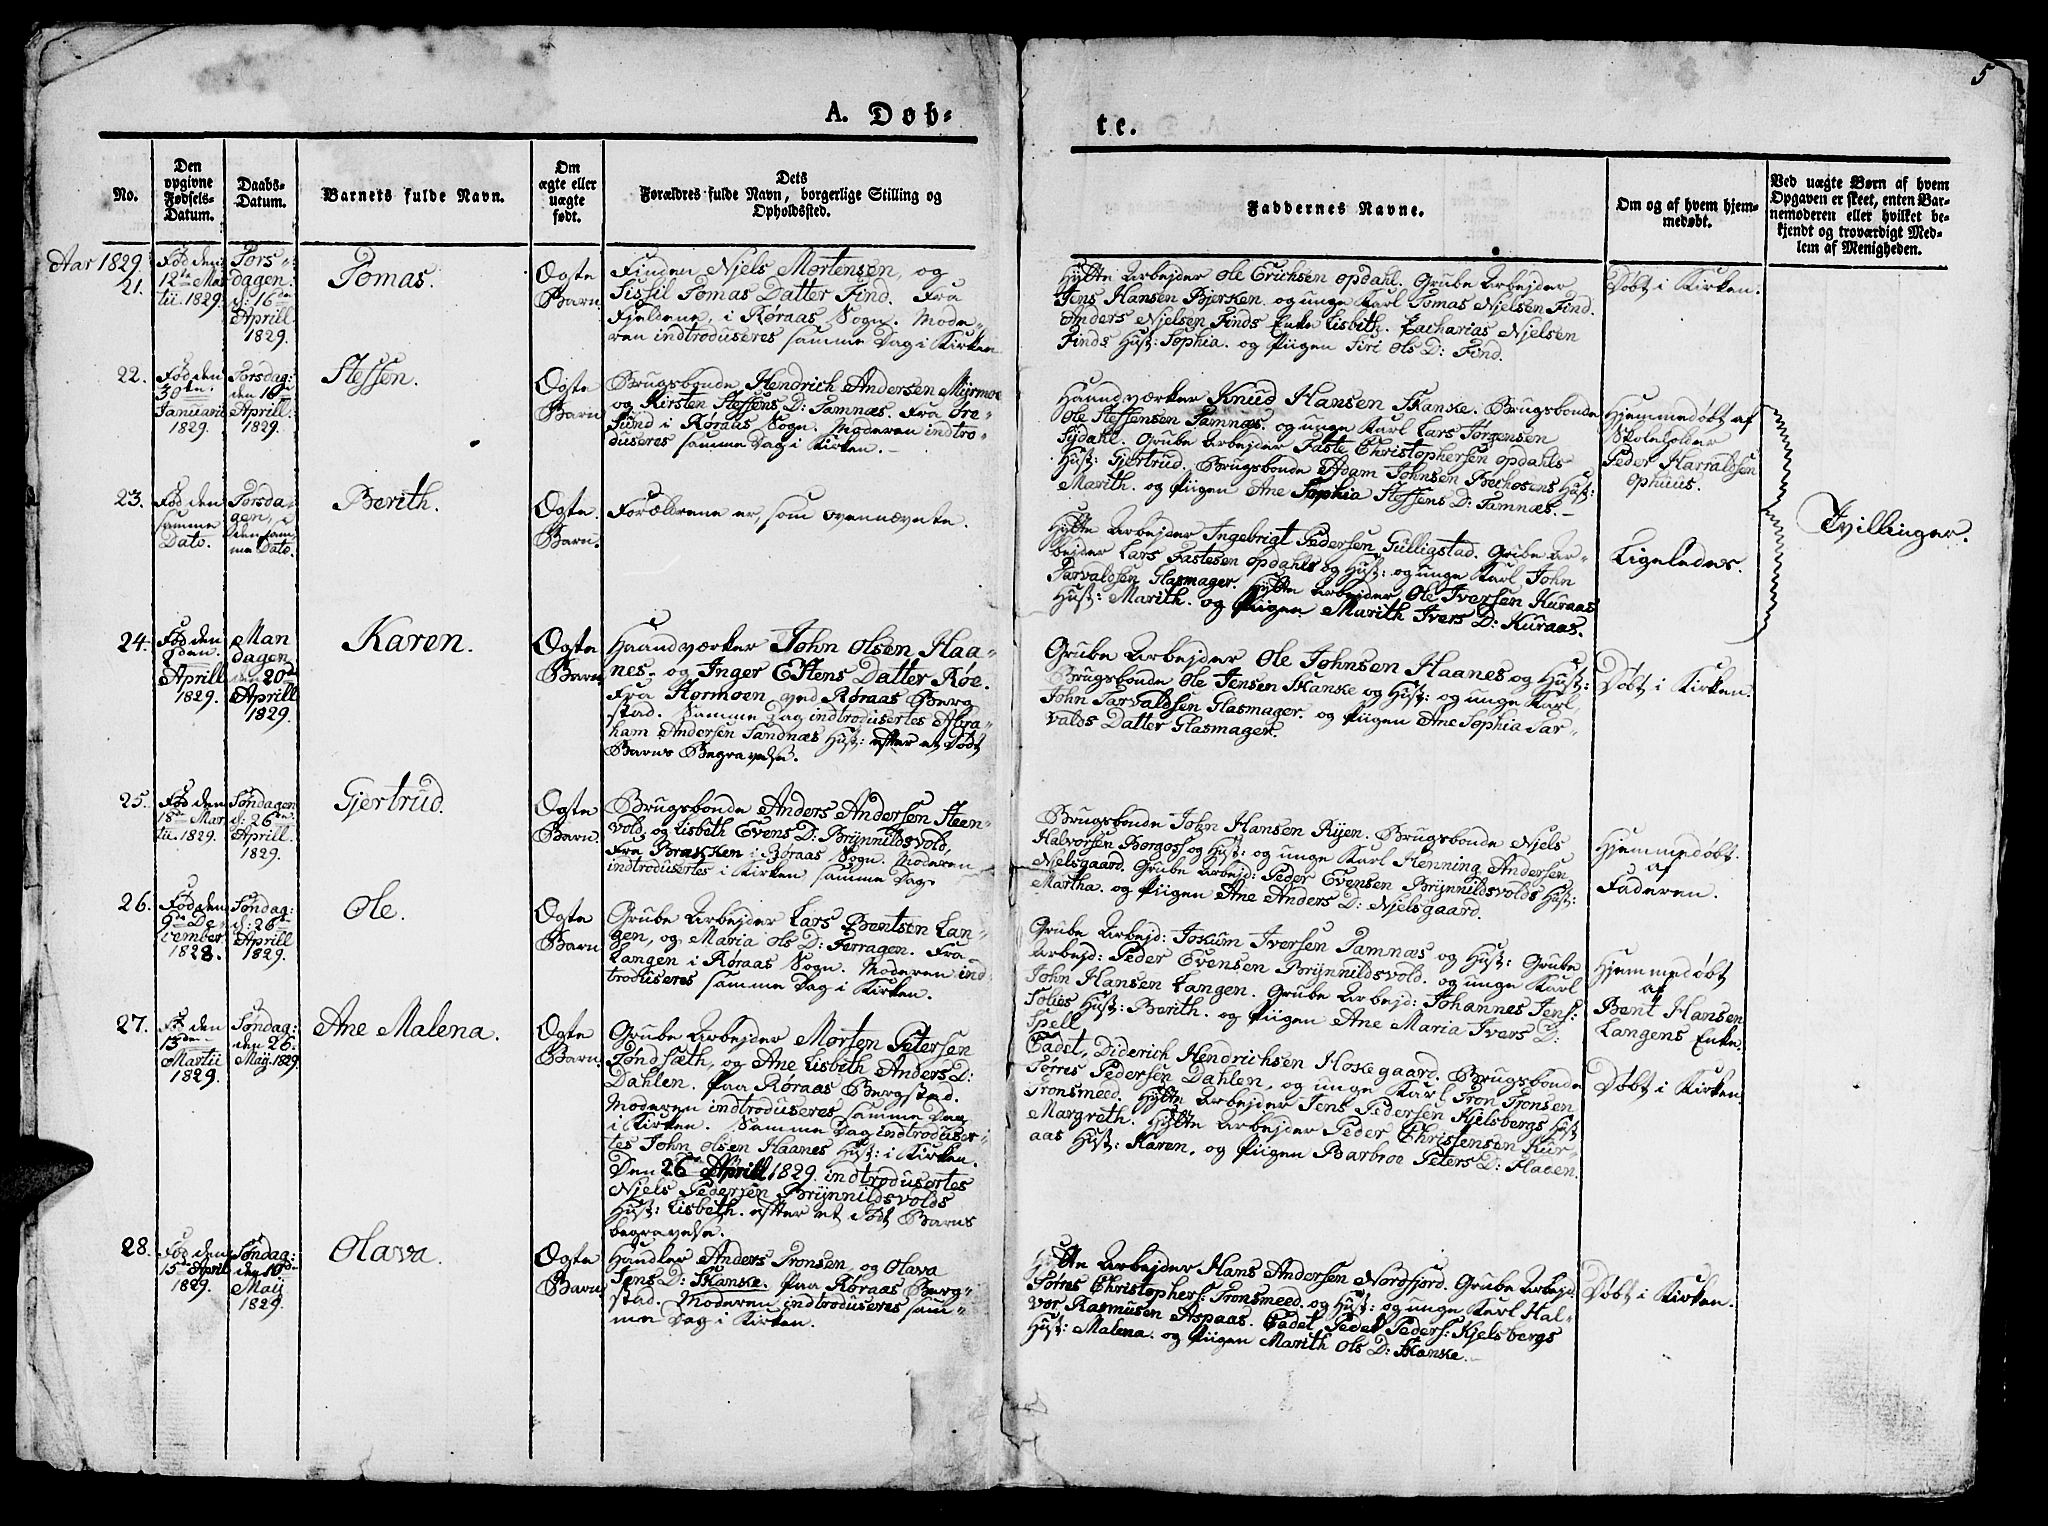 5
A. Døb-
te.
No.
Den
opgivne
Fødsels-
Datum.
Daabs-
Datum.
Barnets fulde Navn.
Om
ægte eller
uægte
født.
Dets
Forældres fulde Navn, borgerlige Stilling og
Opholdssted.
Faddernes Navne.
Om og af hvem hjem-
medøbt.
Ved uægte Børn af hvem
Opgaven er skeet, enten Bar-
nemoderen eller hvilket be-
kjendt og troværdigt Med-
lem af Menigheden.
Aar 1829.
21.
Fød den
12te Mar
tii 1829.
Tors-
dagen
d: 16de
Aprill
1829.
Tomas.
Ægte
Barn.
Finden Njels Mortensen, og
Sissil Tomas Datter Find. Fra
Fjeldene, i Røraas Sogn. Mode-
ren indtroduseres samme Dag i Kirken
Hytte Arbejder Ole Erichsen Opdahl. Grube Arbejder
Jens Hansen Bjerken. og unge Karl Tomas Njelsen Find.
Anders Njelsen Finds Enke Lisbeth. Zacharias Njelsen
Finds Hust: Sophia. og Piigen Siri Ols D: Find.
Døbt i Kirken.
22.
Fød den
30te
Januarii
1829.
Torsdag:
den 16
Aprill:
1829.
Steffen.
Ægte
Barn
Brugsbonde Hendrich Andersen Myrmoe
og Kirsten Steffens D: Tamnæs. Fra Bre-
Sund i Røraas Sogn. Moderen indtro-
duseres samme Dag i Kirken.
Haandværker Knud Hansen Skanke. Brugsbonde
Ole Steffensen Tamnæs. og unge Karl Lars Jørgensen
Sydahl. Grube Arbejder Faste Christophersen Opdahls
Hust: Gjertrud. Brugsbonde Adam Johnsen Bechosens Hust:
Marith. og Piigen Ane Sophia Steffens D: Tamnæs.
Hjemmedøbt af
Skoleholder
Peder Harraldsen
Ophuus.
23.
Fød den
samme
Dato.
Torsda-
gen,
den sam-
me Dato
Berith.
Ægte
Barn.
Forældrene er, som ovennævnte.
Hytte Arbejder Ingebrigt Pedersen Gulligstad. Grube Ar-
bejder Lars Fastesen Opdahls og Hust: og unge Karl John
Tarvaldsen Glasmager. Hytte Arbejder Ole Iversen Kuraas
Hust: Marith. og Piigen Marith Ivers D: Kuraas.
Ligeledes.
Tvillinger.
24.
Fød den
9den
Aprill
1829.
Man
dagen
den 20de
Aprill
1829.
Karen.
Ægte
Barn
Haandværker John Olsen Haa-
nes. og Inger Estens Datter Røe.
Fra Kormoen ved Røraas Berg
stad. Samme Dag indtrodusertes Abra-
ham Andersen Sandnæs Hust: efter et Død
Barns Begravelse.
Grube Arbejder Ole Johnsen Haanes og Hust:
Brugsbonde Ole Jensen Skanke og Hust: og unge Karl
John Tarvaldsen Glasmager. og Piigen Ane Sophia Tar-
valds Datter Glasmager.
Døbt i Kirken.
25.
Fød den
18de Mar
tii 1829.
Søndagen
d: 26de
Aprill.
1829.
Gjertrud.
Ægte
Barn.
Brugsbonde Anders Andersen Steen
vold. og Lisbeth Evens D: Brynnildsvold,
Fra Brækken i Røraas Sogn. Moderen
indtrodusertes i Kirken samme Dag.
Brugsbonde John Hansen Ryen. Brugsbonde Njels
Halvorsen Borgos og Hust: og unge Karl Henning Andersen
Njelsgaard. Grube Arbejd: Peder Evensen Brynnildsvolds Hust:
Martha. og Piigen Ane Anders D: Njelsgaard.
Hjemmedøbt
af
Faderen.
26.
Fød den
9de De-
cember
1828.
Søndag:
d: 26de
Aprill
1829.
Ole.
Ægte
Barn
Grube Arbejder Lars Bentsen Lan-
gen, og Maria Ols D: Ferragen. Fra
Langen i Røraas Sogn. Moderen ind
troduseres samme Dag i Kirken.
Grube Arbejd: Jokum Iversen Tamnæs og Hust: Grube
Arbejd: Peder Evensen Brynnildsvold. og unge Karl
John Hansen Langen. Grube Arbejd: Johannes Jens:
Solies Hust: Berith. og Piigen Ane Maria Ivers D:
Spell
Hjemmedøbt
af
Bent Hansen
Langens Enke.
27.
Fød den
13de
Martii
1829.
Søndag:
den 26.
May. 1829.
Ane Malena.
Ægte
Barn.
Grube Arbejder Morten Petersen
Sondsæth, og Ane Lisbeth Anders D:
Dahlen. Paa Røraas Bergstad.
Moderen indtroduseres samme Dag
i Kirken. Samme Dag indtroduser-
tes John Olsen Haanes Hust: i Kirken.
Den 26de Aprill 1829. indtrodusertes
Njels Pedersen Brynnildsvolds
Hust: Lisbeth. efter et Død Barns
begravelse.
Cadet, Diderich Hendrichsen Hosegaard. Brugsbonde
Sørres Pedersen Dahlen, og unge Karl Tron Tronsen
Tronsmeed. Hytte Arbejder Jens Pedersen Kjelsbergs Hust
Margreth. Hytte Arbejder Peder Christensen Kur-
aas Hust: Karen. og Piigen Barbroe Peters D: Hagen.
Døbt i Kirken.
28.
Fød den
15de April
1829.
Søndag:
den 10de
Maij
1829.
Olava.
Ægte
Barn
Handler Anders Tronsen, og Olava
Jens D: Skanke. Paa Røraas Berg-
stad. Moderen indtroduseres sam-
me Dag i Kirken.
Hytte Arbejder Hans Andersen Nordfjord. Grube Arbejd:
Sørres Christophers: Tronsmeed. og Hust: og unge Karl Hal-
vor Rasmusen Aspaas. Cadet Peder Peders: Kjelsbergs
Hust: Malena. og Piigen Marith Ols D: Skanke.
Døbt i Kirken.